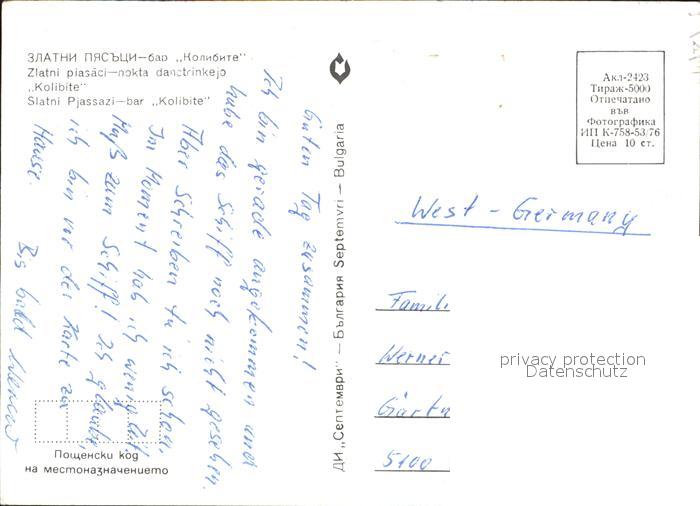 ЗЛАТНИ ПЯСЪЦИ—бар „Колибите“
Zlatni piasăci—nokta danctrinkejo
„Kolibite“
Slatni Pjassazi—bar „Kolibite“
Guten Tag zusammen!
Ich bin gerade angekommen und
habe das Schiff noch nicht gesehen.
Aber Schreiben tu ich schon.
Im Moment hab ich wenig Zeit
Muß zum Schiff! Ich glaube,
ich bin vor der Karte zu
Hause.
Bis bald Werner
Пощенски код
на местоназначението
ДИ „Септември“ — България Septemvri — Bulgaria
Акл-2423
Тираж-5000
Отпечатано
във
Фотографика
ИП К-758-53/76
Цена 10 ст.
West - Germany
Famili
Werner
Gärtn
5100
privacy protection
Datenschutz